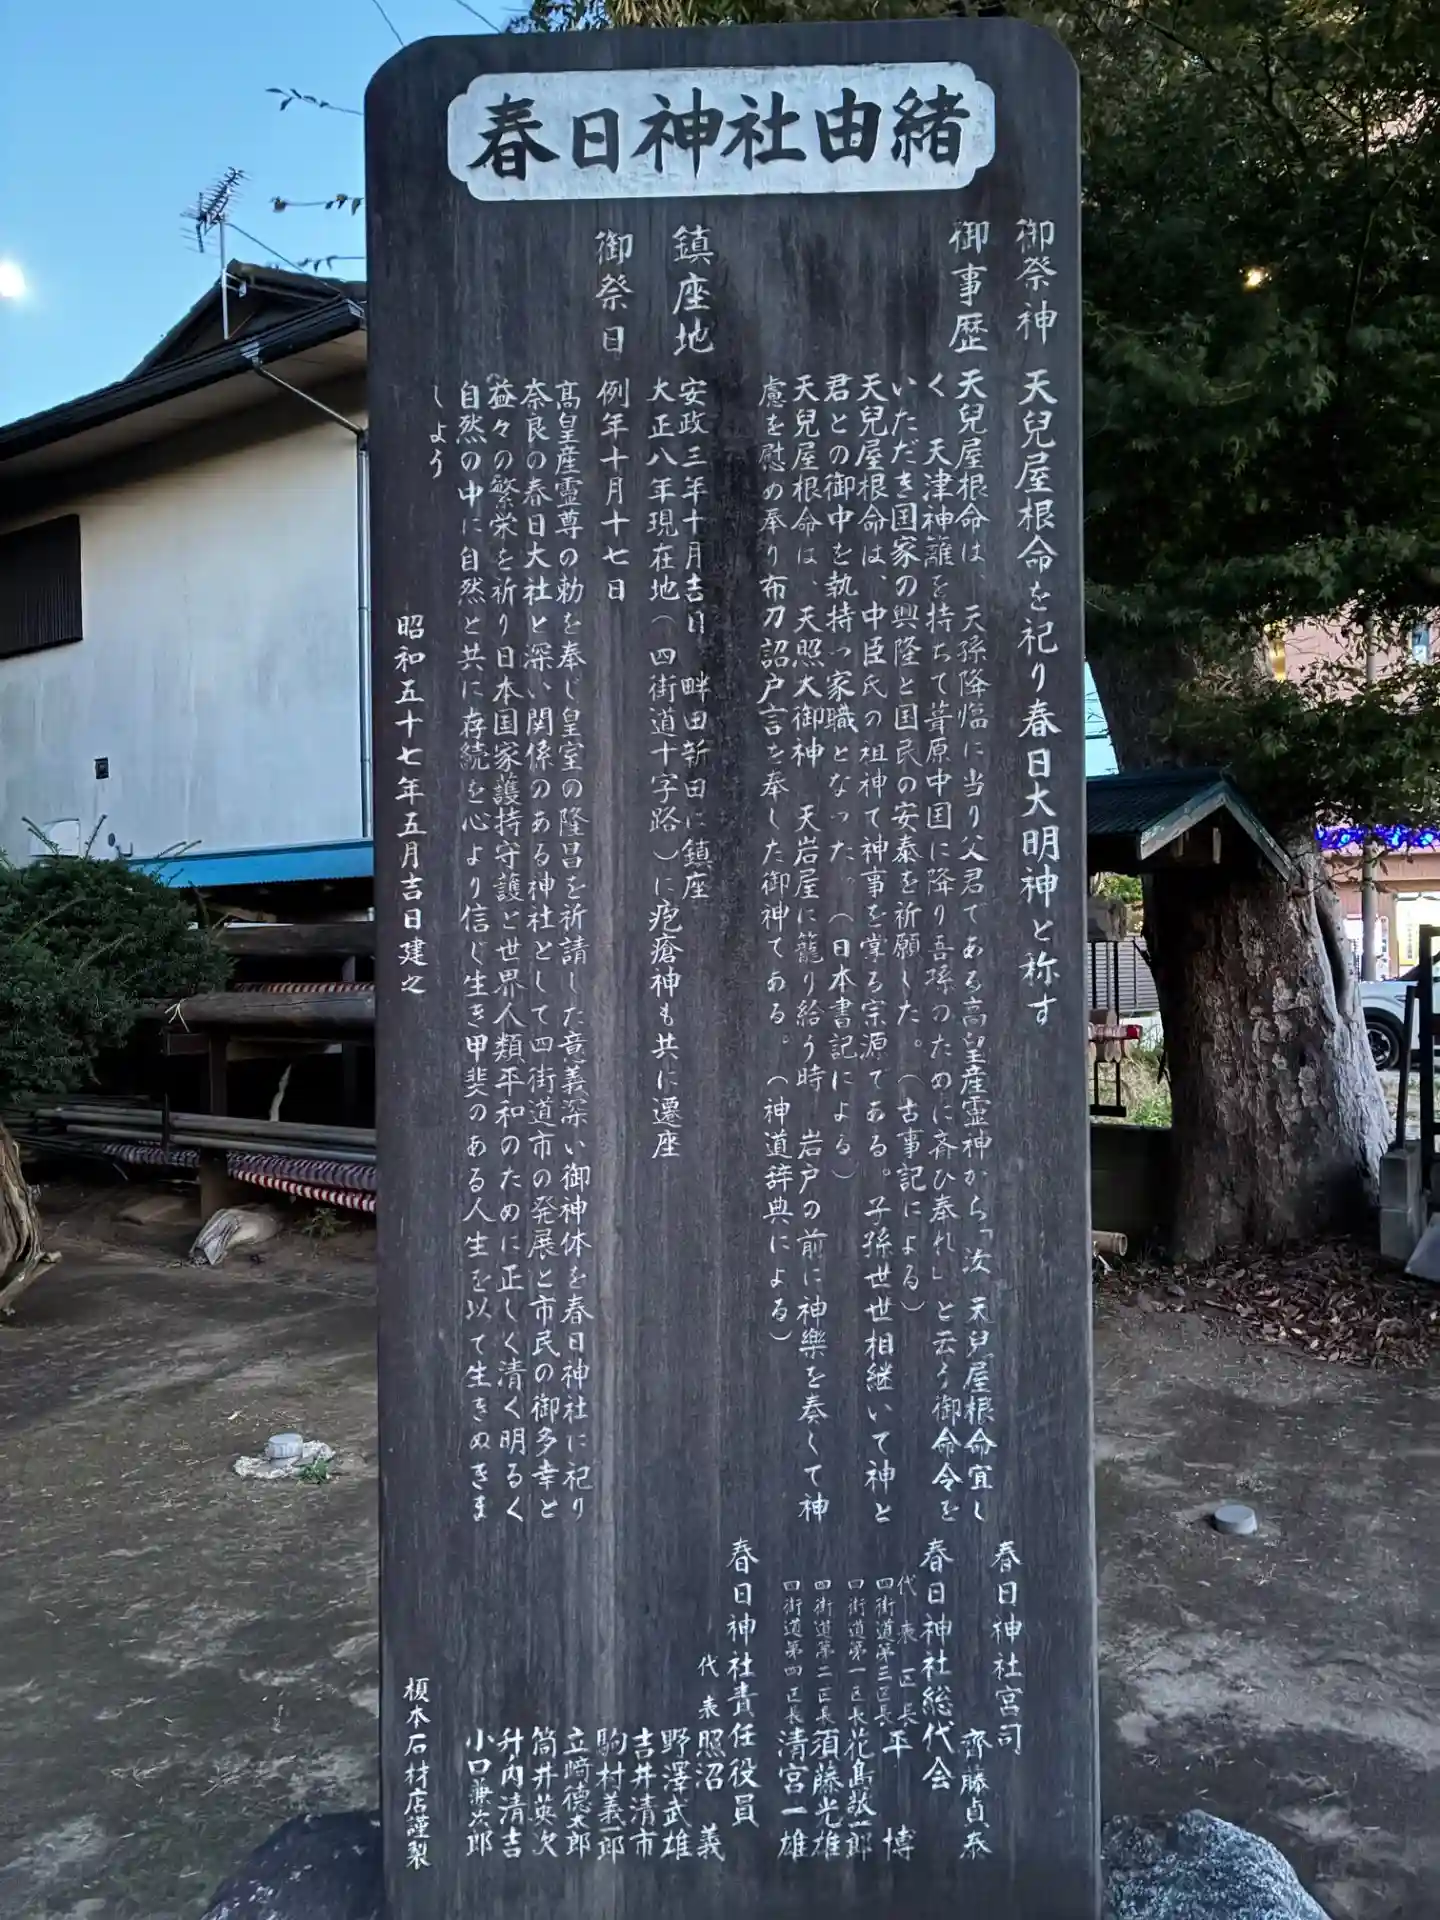 春日神社由緒
御祭神 天兒屋根命を祀り春日大明神と称す
御事歴 天兒屋根命は、天孫降臨に当り父君である高皇産霊神から「汝 天兒屋根命宜し
く 天津神籬を持ちて葺原中国に降り吾孫のために斎ひ奉れ」と云う御命令を
いただき国家の興隆と国民の安泰を祈願した。(古事記による)
天兒屋根命は、中臣氏の祖神で神事を掌る宗源である。子孫世世相継いで神と
君との御中を執持つ家職となった。(日本書記による)
天兒屋根命は、天照大御神 天岩屋に籠り給う時 岩戸の前に神樂を奏して神
慮を慰め奉り布刀詔戸言を奉した御神である。(神道辞典による)
鎮座地 安政三年十月吉日 畔田新田に鎮座
大正八年現在地(四街道十字路)に疱瘡神も共に遷座
御祭日 例年十月十七日
高皇産霊尊の勅を奉じ皇室の隆昌を祈請した意義深い御神体を春日神社に祀り
奈良の春日大社と深い関係のある神社として四街道市の発展と市民の御多幸と
益々の繁栄を祈り日本国家護持守護と世界人類平和のために正しく清く明るく
自然の中に自然と共に存続を心より信じ生き甲斐のある人生を以て生きぬきま
しょう
昭和五十七年五月吉日建之
春日神社宮司
齊藤貞泰
春日神社総代会
代表区長 平 博
四街道第三区長
四街道第一区長 花島敬一郎
四街道第二区長 須藤光雄
四街道第四区長 清宮一雄
春日神社責任役員
代表 照沼 義
野澤武雄
吉井清市
駒村義一郎
立﨑德太郎
筒井英次
升内清吉
小口兼次郎
榎本石材店謹製